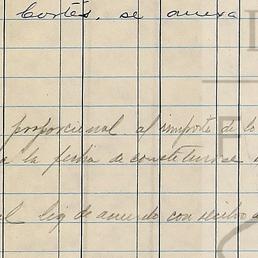 Cortés, se anexa
proporcional al importe de lo
a la fecha de constituirse
liq de acuerdo con recibo